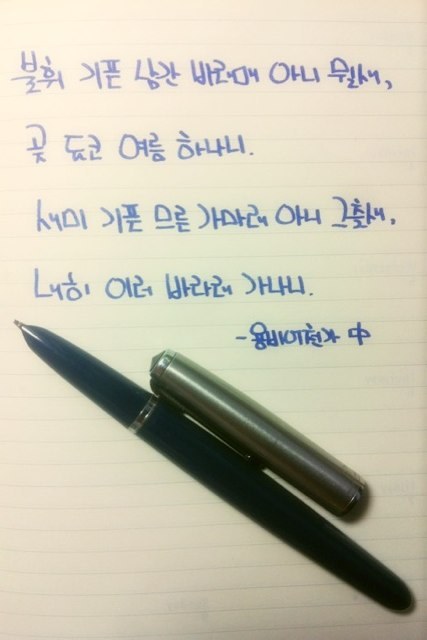 불휘 기픈 남간 바라매 아니 뮐새,
곶 됴코 여름 하나니.
새미 기픈 므른 가마래 아니 그츨새,
내히 이러 바라래 가나니.
-용비어천가 中